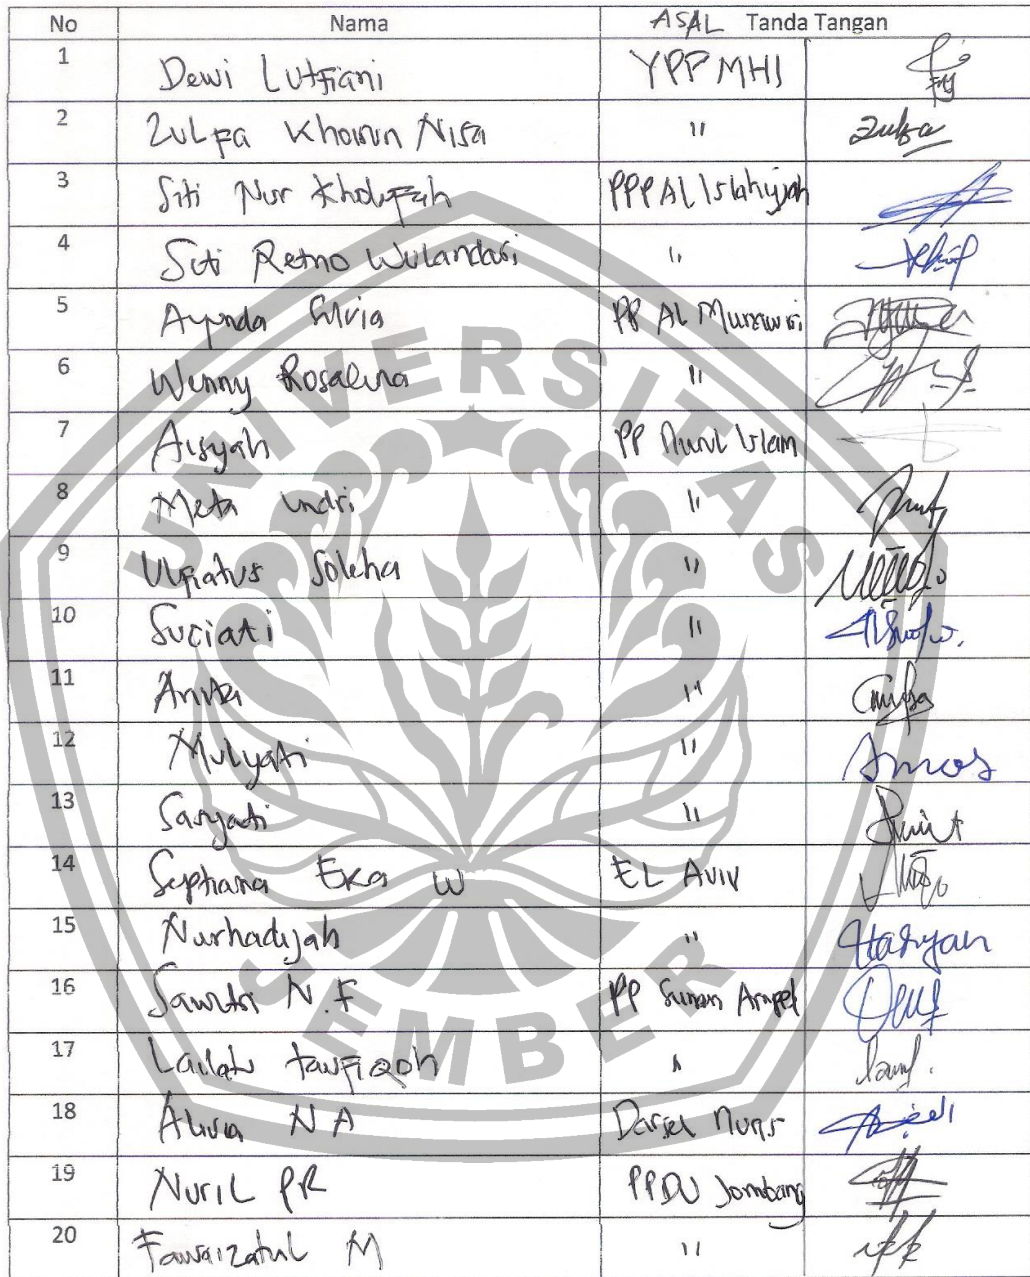 No Nama ASAL Tanda Tangan
1 Dewi Lutfiani YPP MHI
2 Zulfa Khoirun Nisa "
3 Siti Nur Kholifah PPP Al Islahiyah
4 Siti Retno Wulandari "
5 Ayunda Silvia PP AL Munawiri
6 Wenny Rosalina "
7 Aisyah PP Nurul Islam
8 Meta Indri "
9 Ulfiatus Soleha "
10 Suciati "
11 "
12 Mulyati "
13 Saryati "
14 Septiana Eka W EL AVIV
15 Nurhadijah "
16 Sawitri N.F PP Sunan Ampel
17 Lailatu taufiqoh "
18 Alivia N A
19 Nuril PR PPDU Jombang
20 Fawaizatul M "
UNIVERSITAS
JEMBER